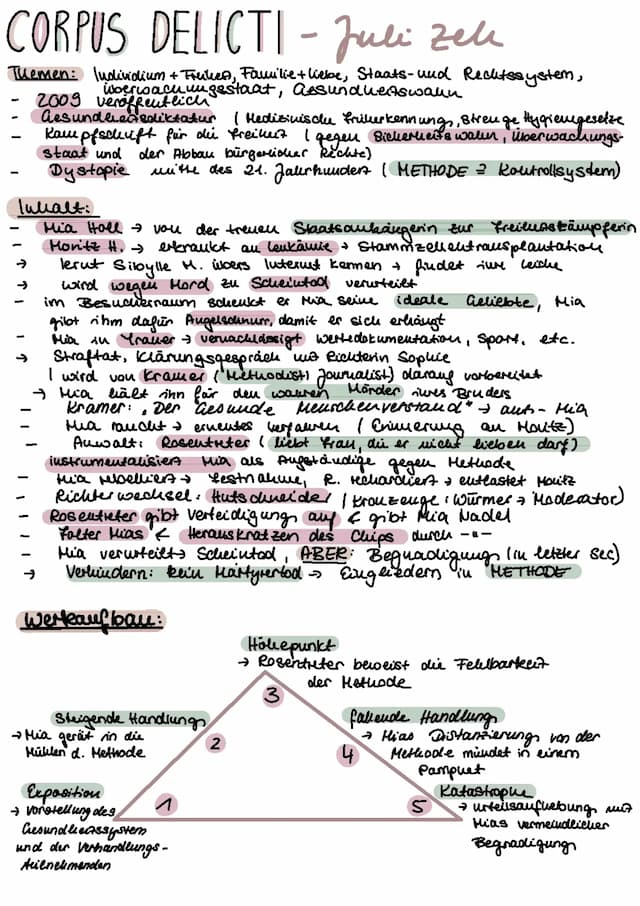 CORPUS DELICTI - Juli Zeh
Themen: Individium + Freiheit, Familie + Liebe, Staats- und Rechtssystem,
überwachungsstaat, Gesundheitswahn
- 2009 veröffentlich
- Gesundheitsdiktatur (Medizinische Früherkennung, strenge Hygienegesetze
- Kampfschrift für die Freiheit (gegen Sicherheitswahn, Überwachungs-
staat und der Abbau bürgerlicher Rechte)
- Dystopie mitte des 21. Jahrhundert (METHODE ≙ Kontrollsystem)
Inhalt:
- Mia Holl → von der treuen Staatsanhängerin zur Freiheitskämpferin
- Moritz H. → erkrankt an Leukämie → Stammzellentransplantation
→ lernt Sibylle M. übers Internet kennen → findet ihre Leiche
→ wird wegen Mord zu Scheintod verurteilt
- im Besucherraum schenkt er Mia seine ideale Geliebte, Mia
gibt ihm dafür Angelschnur, damit er sich erhängt
- Mia in Trauer → vernachlässigt Wertedokumentation, Sport, etc.
→ Straftat, Klärungsgespräch mit Richterin Sophie
| wird von Kramer (Methodist, Journalist) darauf vorbereitet
→ Mia hält ihn für den wahren Mörder ihres Bruders
- Kramer: „Der Gesunde Menschenverstand" → anti-Mia
- Mia raucht → erneutes verfahren (Erinnerung an Moritz)
- Anwalt: Rosentreter (liebt Frau, die er nicht lieben darf)
instrumentalisiert Mia als Angständige gegen Methode
- Mia rebelliert → Festnahme, R. → entlastet Moritz
- Richterwechsel: Hutschneider (Kronzeuge: Würmer → Moderator)
- Rosentreter gibt Verteidigung auf & gibt Mia Nadel
- Folter Mias & Herauskratzen des Chips durch -"-
- Mia verurteilt → Scheintod, ABER: Begnadigung (in letzter Sec)
→ Verhindern: kein Märtyrertod → Eingliedern in METHODE
Werkaufbau:
Höhepunkt
→ Rosentreter beweist die Fehlbarkeit
der Methode
3
Steigende Handlung
→ Mia gerät in die
Mühlen d. Methode
2
fallende Handlung
→ Mias Distanzierung von der
Methode mündet in einem
Pamphlet
4
Exposition
→ Vorstellung des
Gesundheitssystem
und der Verhandlungs-
teilnehmenden
1
5
Katastrophe
→ Urteilsaufhebung mit
Mias vermeindlicher
Begnadigung